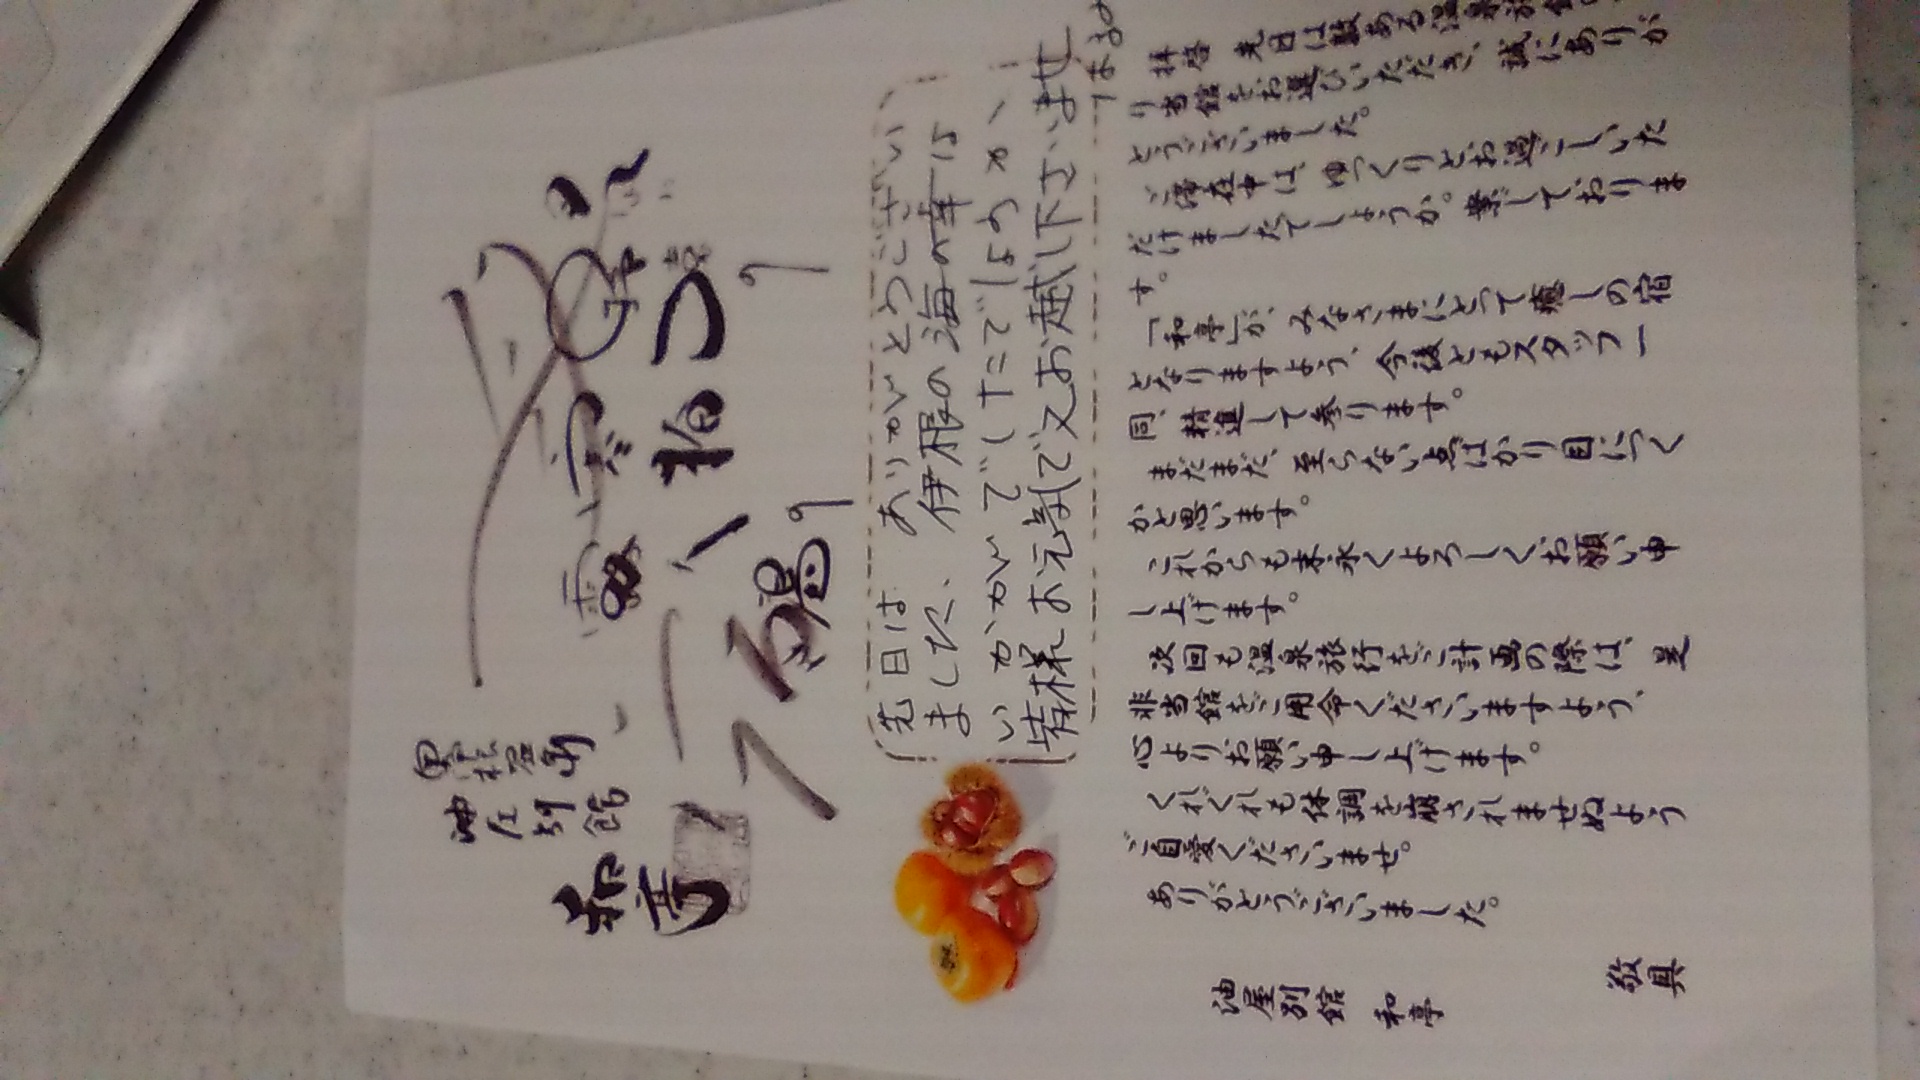 先日は ありがとうござい
ました、伊根の海の幸は
いかがでしたでしょうか、
皆様お元気で又お越し下さいませ
拝啓 先日は数ある温泉旅館の
り当館をお選びいただき、誠にありが
とうございました。
ご滞在中は、ゆっくりとお過ごしいた
だけましたでしょうか。案じておりま
す。
「和亭」が、みなさまにとって癒しの宿
となりますよう、今後ともスタッフ一
同、精進して参ります。
まだまだ、至らない点ばかり目につく
かと思います。
これからも末永くよろしくお願い申
し上げます。
次回も温泉旅行をご計画の際は、是
非当館をご用命くださいますよう、
心よりお願い申し上げます。
くれぐれも体調を崩されませぬよう
ご自愛くださいませ。
ありがとうございました。
敬具
油屋別館 和亭
奥伊根温泉
油屋別館
和亭